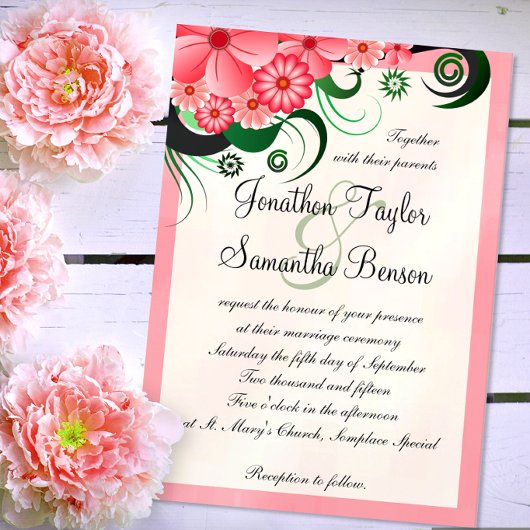 Together
with their parents
Jonathon Taylor
&
Samantha Benson
request the honour of your presence
at their marriage ceremony
Saturday the fifth day of September
Two thousand and fifteen
Five o'clock in the afternoon
at St. Mary's Church, Somplace Special
Reception to follow.